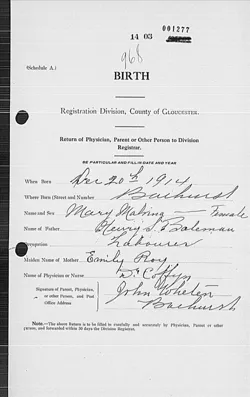 001277
14 03
968
(Schedule A.)
BIRTH
Registration Division, County of GLOUCESTER.
Return of Physician, Parent or Other Person to Division
Registrar.
BE PARTICULAR AND FILL IN DATE AND YEAR
When Born Dec 20th 1914
Where Born (Street and Number) Bathurst
Name and Sex Mary Female
Name of Father Henry J. Boleman
Occupation Labourer
Maiden Name of Mother Emily Roy
Name of Physician or Nurse Dr Coffyn
Signature of Parent, Physician, or other Person, and Post Office Address
John Wheten
Bathurst
NOTE.—The above Return is to be filled in carefully and accurately by Physician, Parent or other
person, and forwarded within 30 days the Division Registrar.